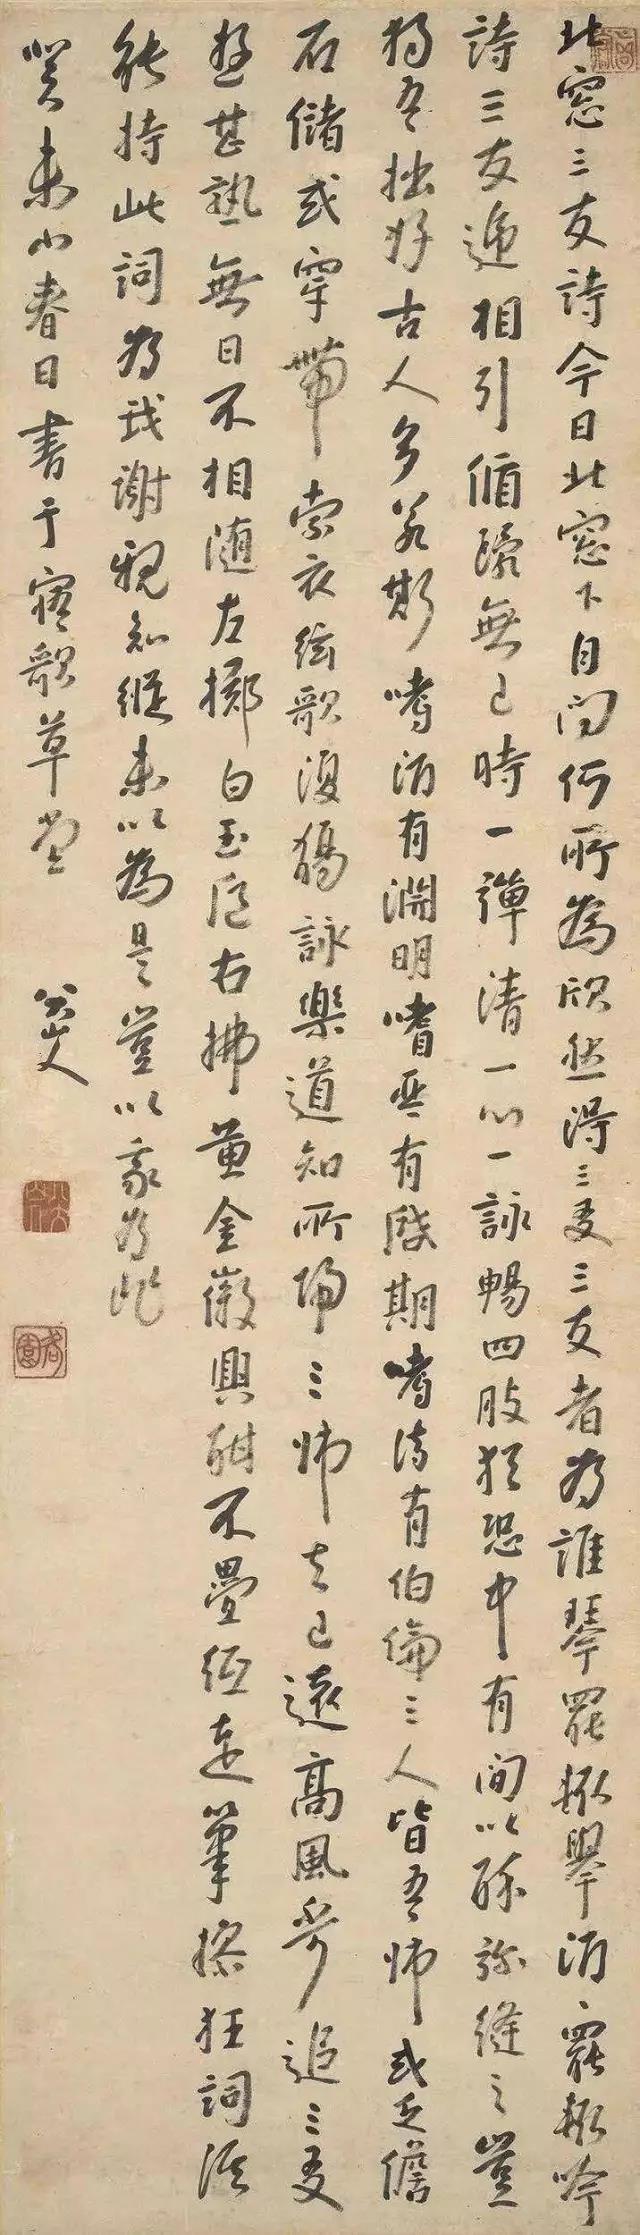 北窓三友詩今日北窓下自問何所為欣然得三友三友者為誰琴罷輒舉酒酒罷輒吟
詩三友遞相引循環無已時一彈清一心一詠暢四肢猶恐中有間以酔弥縫之豈
獨吾拙好古人多若斯嗜酒有淵明嗜琴有啟期嗜詩有伯倫三人皆吾師或乏儋
石儲或穿帶索衣絃歌復觴詠樂道知所歸三師去已遠高風不可追三友
遊甚熟無日不相随左擲白玉巵右拂黃金徽興酣不疊紙走筆操狂詞誰
能持此詞為我謝親知縱未以為是豈以我為非
癸未小春日書于寤歌草堂
八大山人